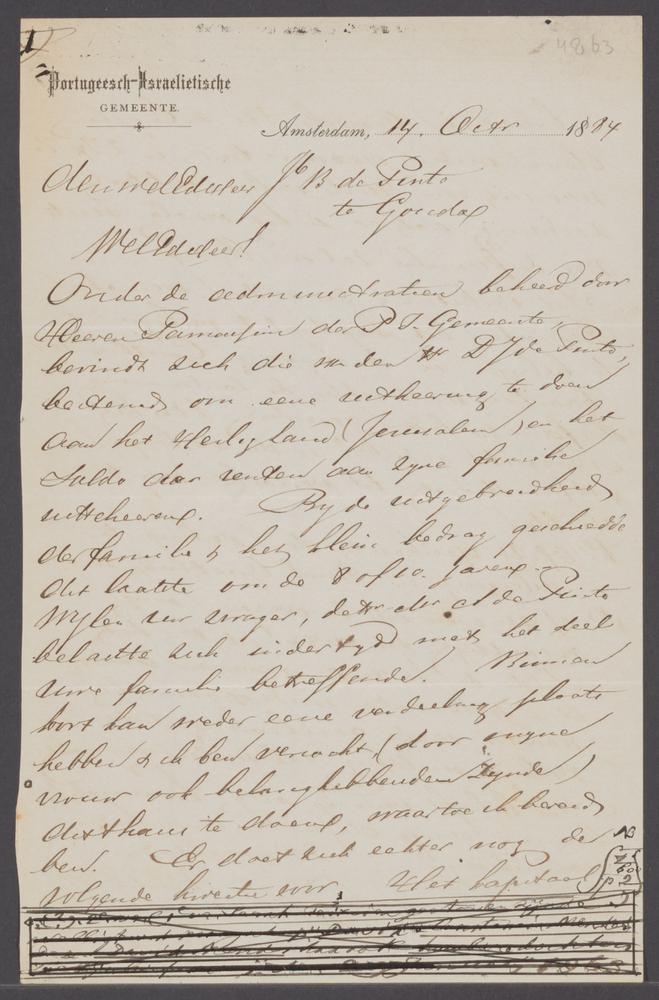 4863
Portugeesch-Israelietische
GEMEENTE.
Amsterdam, 14. Octr 1884
den WelEdelen Jb B de Pinto
te Gouda
WelEdeler!
Onder de administratien beheerd door
Heeren Parnassim der P. I. Gemeente,
bevindt zich die van den Hr D J de Pinto,
bestemd om eene uitkeering te doen
aan het Heilig Land (Jerusalem) en het
Saldo der renten aan zyne familie
uittekeeren. By de uitgebreidheid
der familie & het klein bedrag geschiedde
dit laatste om de 8 of 10. jaren.
Wylen uw zwager, de Pinto
belastte zich indertyd met het deel
uwe familie betreffende. Binnen
kort kan weder eene verdeeling plaats
hebben & ik ben verzocht (door myne
vrouw ook belanghebbende zynde)
dit thans te doen, waartoe ik bereid
ben. Er doet zich echter nog de
volgende kwestie voor. Het kapitaal